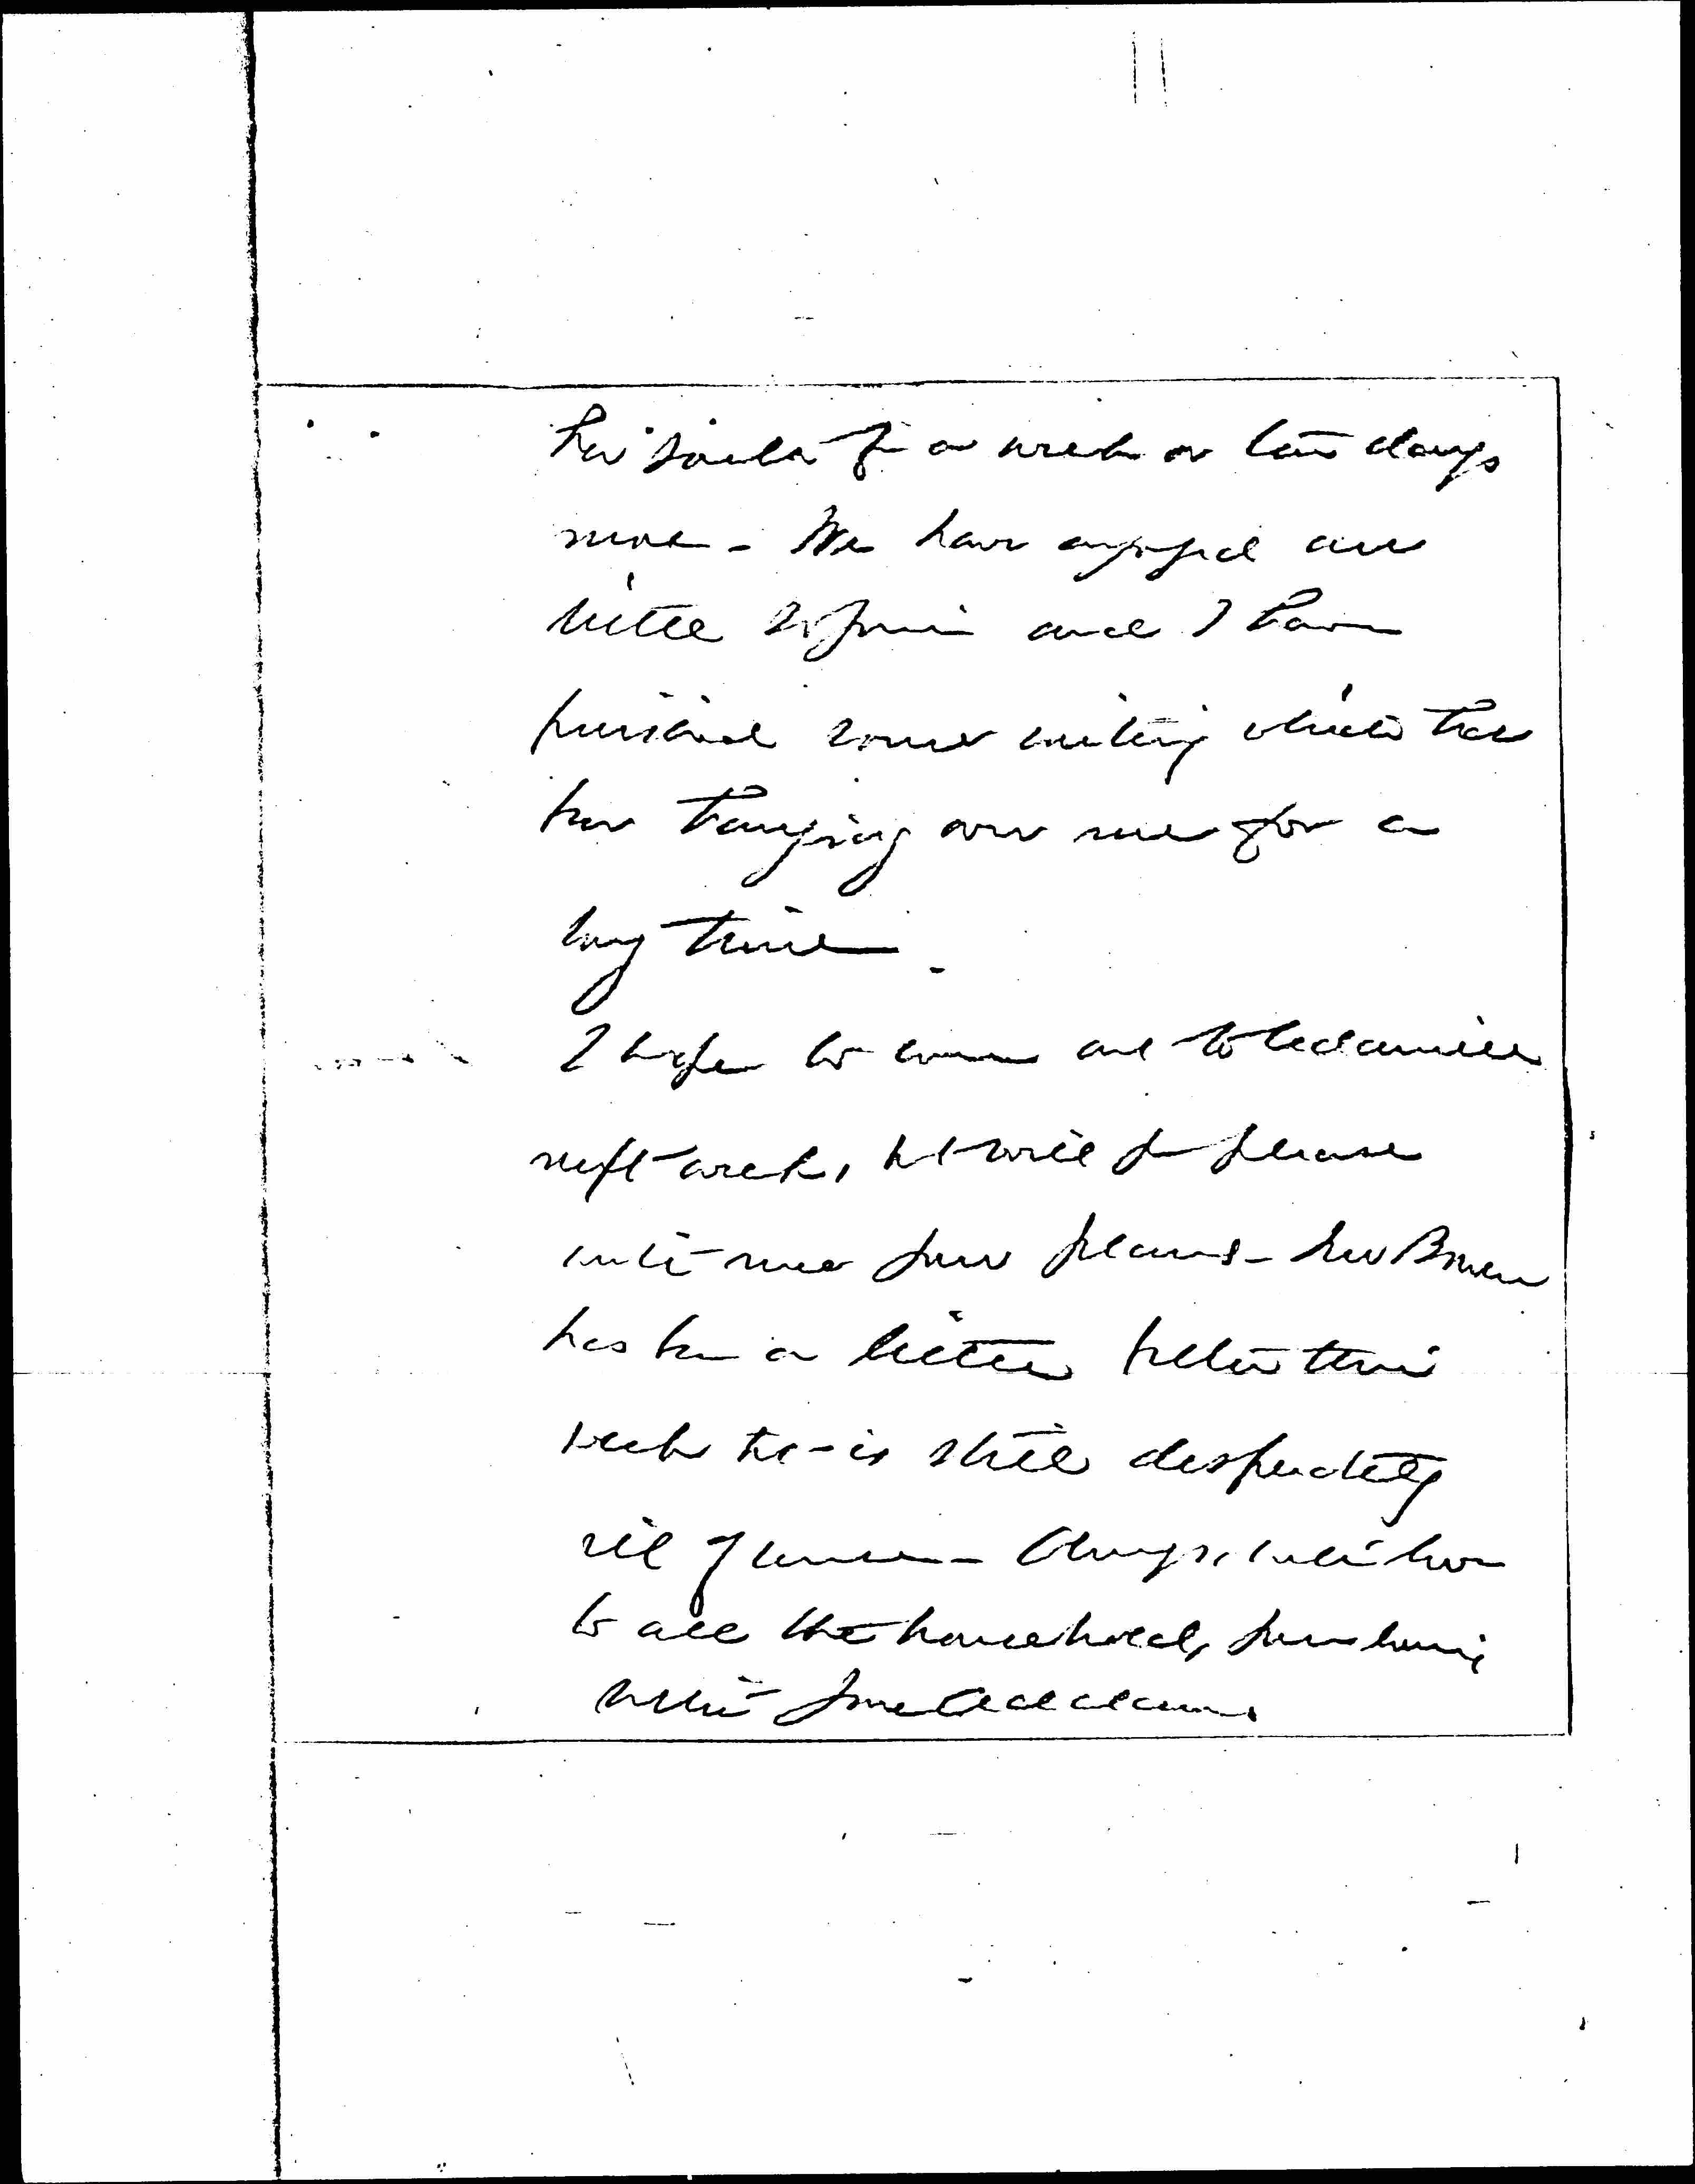 for a week or ten days
more - We have enjoyed our
little and I have
finished some writing which has
been hanging over me for a
long time.
I hope to come out to Cedarmere
next week, but will you please
write me your plans - Mr Brown
has been a little better this
week but is still desperately
ill of course - Always, with love
to all the household, your loving